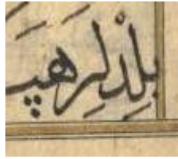 بلدلر هپ